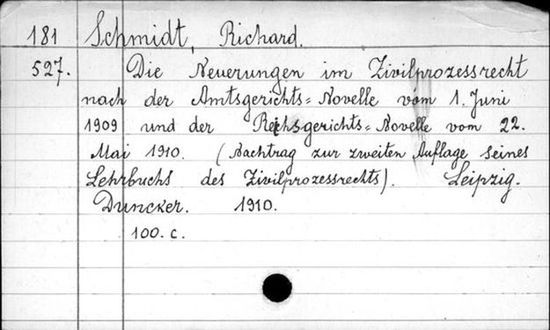 181 Schmidt, Richard.
527. Die Neuerungen im Zivilprozessrecht
nach der Amtsgerichts=Novelle vom 1. Juni
1909 und der Reichsgerichts=Novelle vom 22.
Mai 1910. (Nachtrag zur zweiten Auflage seines
Lehrbuchs des Zivilprozessrechts). Leipzig.
Duncker. 1910.
100. c.